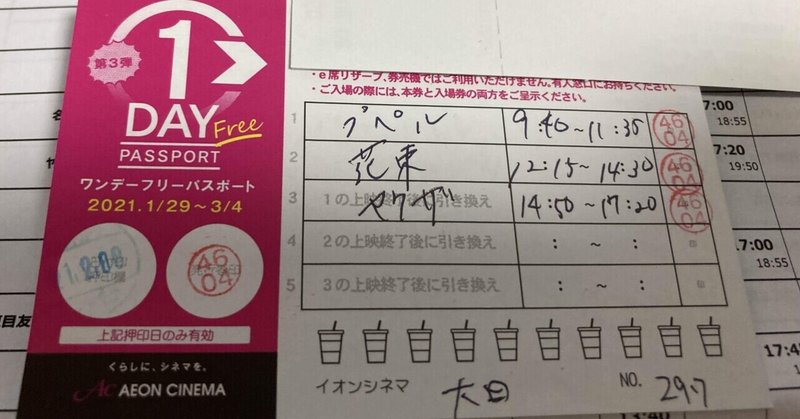 第3弾
1
DAY Free
PASSPORT
ワンデーフリーパスポート
2021.1/29～3/4
46
04
上記押印日のみ有効
くらしに、シネマを。
AC AEON CINEMA
・e席リザーブ、券売機ではご利用いただけません。有人窓口にお持ちください。
・ご入場の際には、本券と入場券の両方をご呈示ください。
1 プペル 9:40～11:35 46 04
2 花束 12:15～14:30 46 04
3 1の上映終了後に引き換え ヤクザ 14:50～17:20 46 04
4 2の上映終了後に引き換え : ～ : 印
5 3の上映終了後に引き換え : ～ : 印
イオンシネマ 大日 NO. 297
17:00
18:55
19:50
17:00
18:55
目友
17:4
13:40